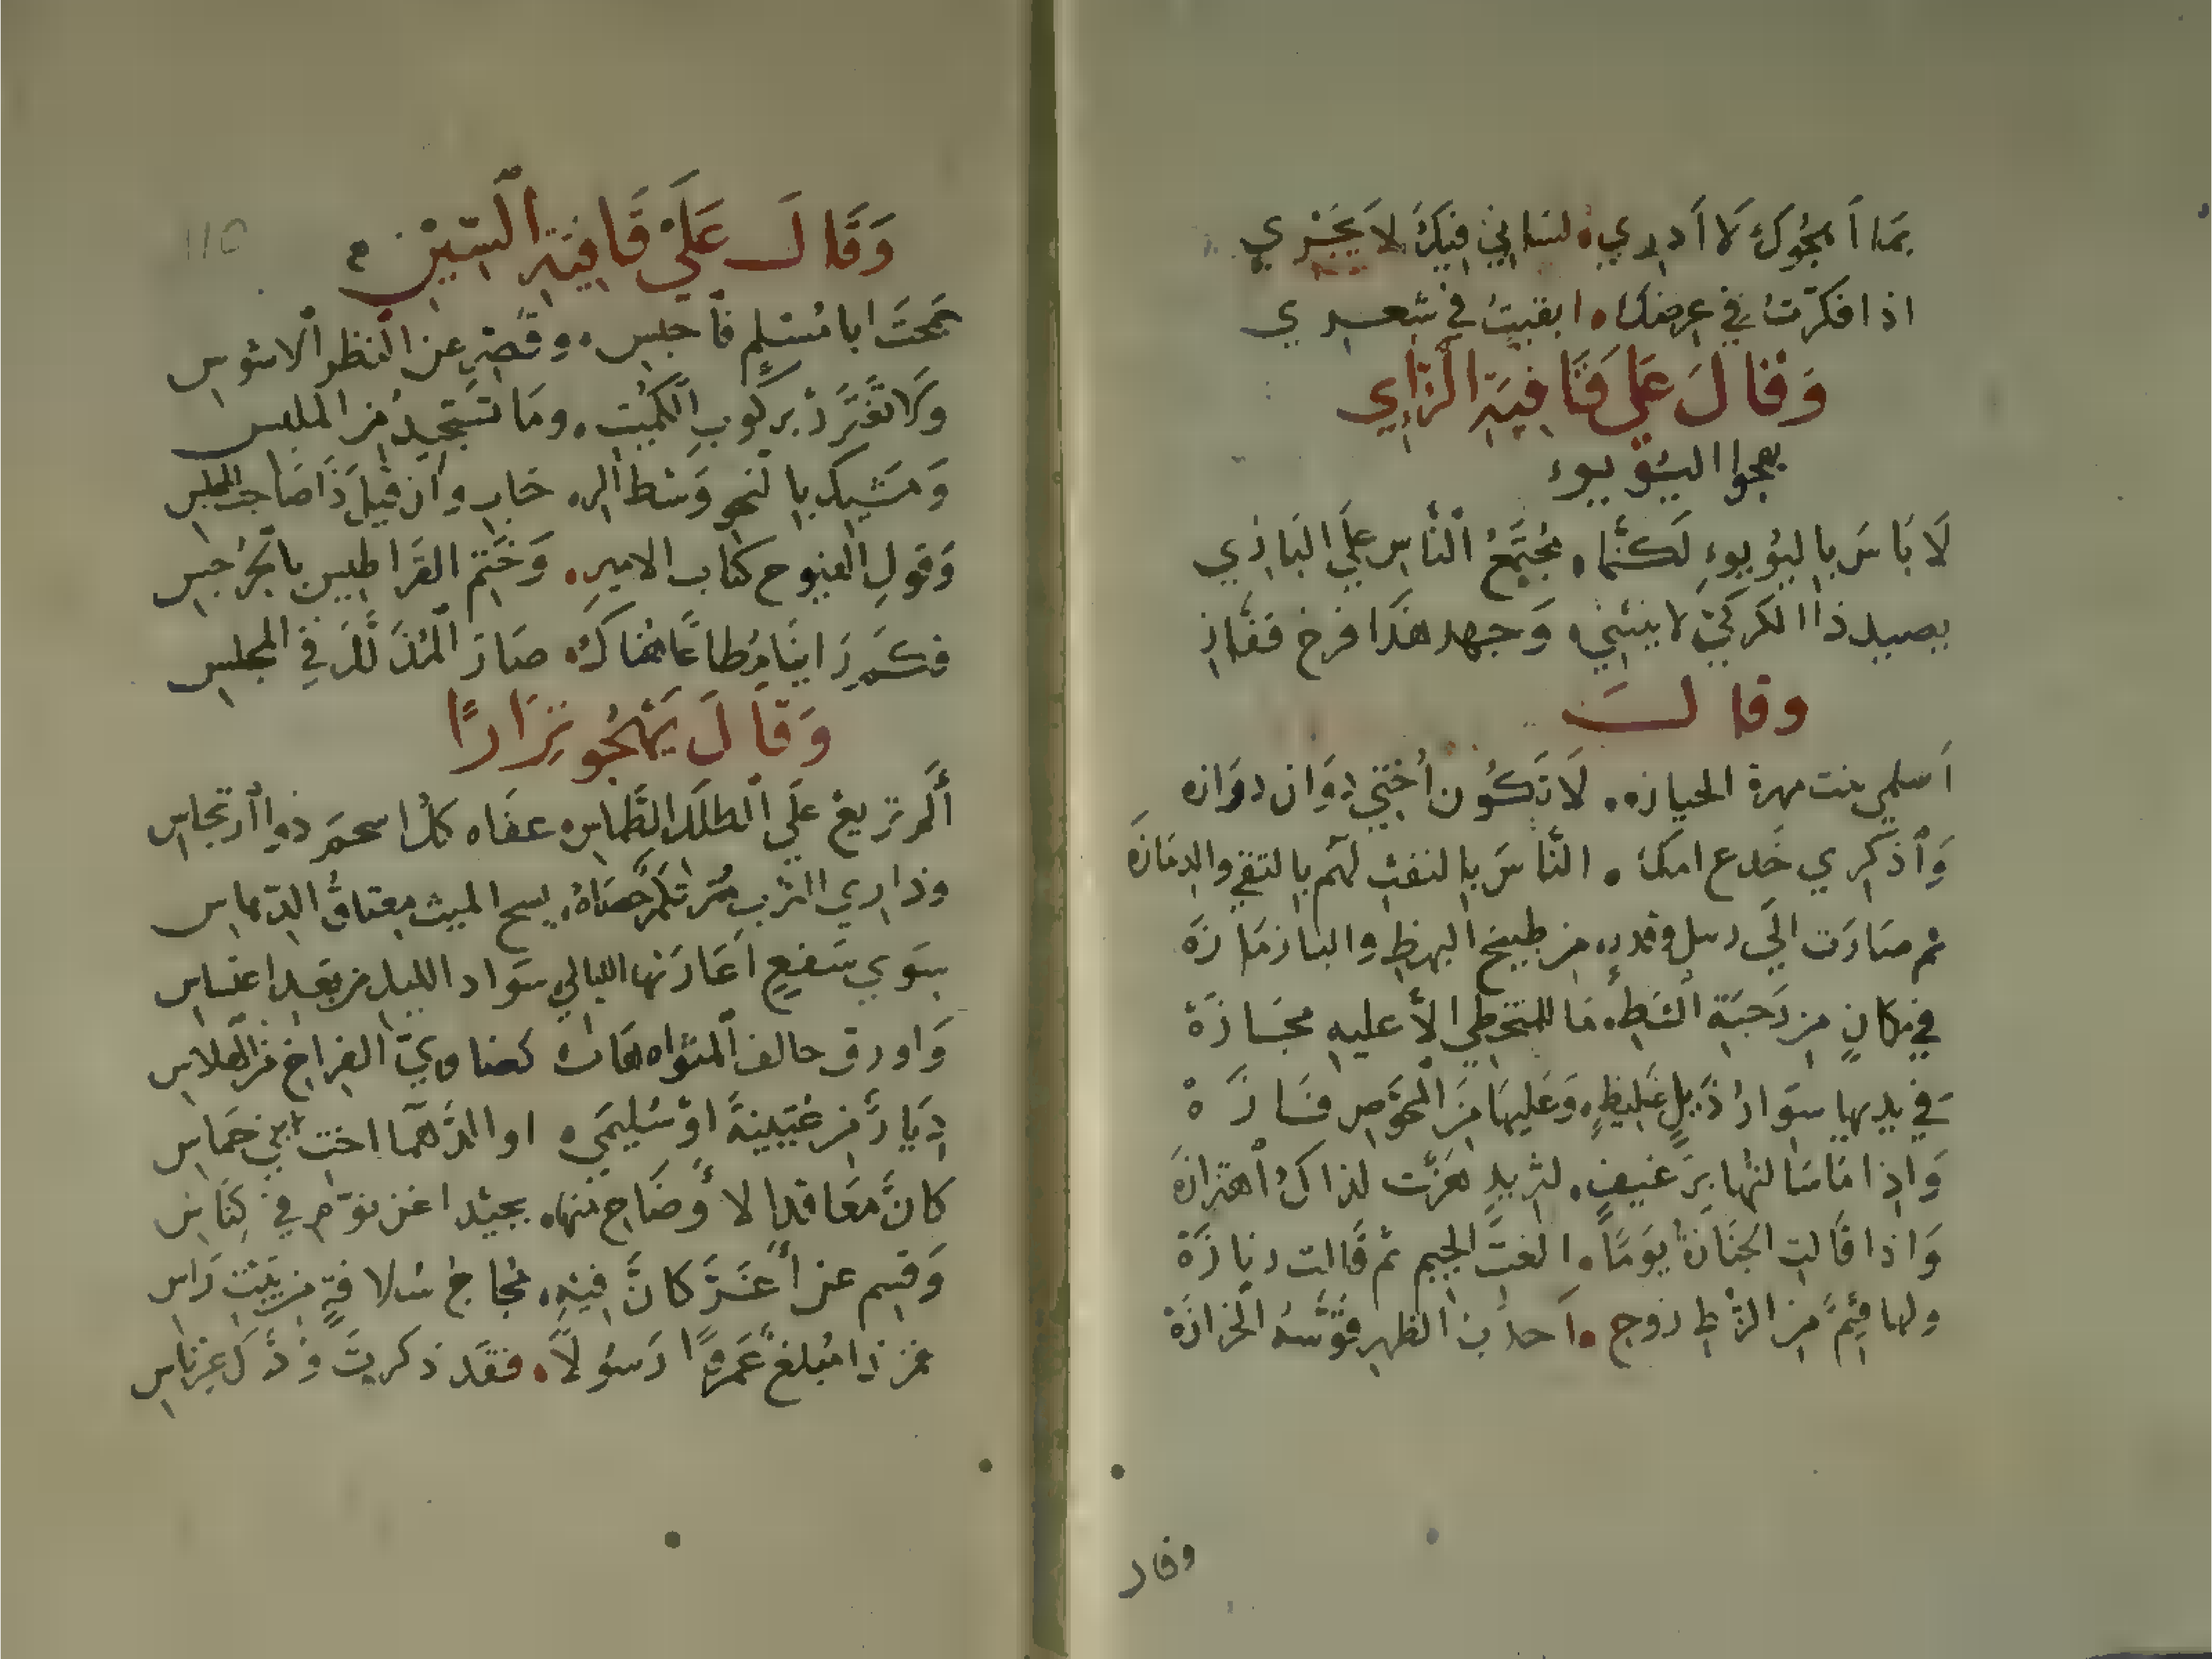 بمَا أهجُوكَ لَا أَدري، لسَاني فيكَ لَا يَجْري
اذا فكرّتُ في عرضك، ابقيتُ في شعـري
وَقَالَ عَلَى قَافِيَةِ الزَّاي
يهجوا اليؤيوء
لَا بَاسَ باليؤيوءِ لَكنَّما، مُجتَمَعُ النَّاسِ عَلَى البَازي
يصيد ذا الكركيّ لا ينثني، وَجهد هَذَا فرخ قفَّاز
وقالَـ
اسلمي بنت مهرة الخبازه، لَا تَكُون أُختي دوَان دوَازه
وَاذكري خَدع امك، النَّاسَ بالنفث لهم بالتقى والدمَازَه
ثم صَارَت الَى رسل وقدرٍ، من طبيخ البهظ والبَازمَازَه
في مكانٍ من رَحبَةِ الشَطِ، مَا للتخطي الَّا عليه مجَازَةْ
في يديها سوَارُ ذَبلٍ غليظٍ، وَعَليهَا مِنَ الخوَّصِ فَازَه
وَاذا مَا سَالتُها برَغيفٍ، لثريدٍ هَزَّت لذاكَ اهتزازَه
وَاذا قَالت الجنَازةُ يوَمًا، الغتَ الجيم ثم قَالت دنازَة
ولها قيّمٌ من الزُّطِ زوج، احدَب الظهرِ قوَّسهُ الخزازَة
وقال
110
وَقَالَـ عَلَىْ قَافِيَةِ السِّيْنِ
جمَحتَ ابا مُسْلمٍ فَاحبِس، وقصّرِ عن النظر الاشوس
وَلَا تغتَرَّرْ بركوبِ الكُميْتِ، ومَا تَستَجيدُ من الملبس
وَمَشيك بالنحو وَسْط الرحاب وان قيلَ ذَا صَاحبُ المجلس
وَقولِ الفيوح كتاب الاميرِ، وَختْمِ القرَاطيس بالجرْجس
فكَم رَاينَا مُطاعًا هُنَاكَ، صَارَ المُذَلَّلَ في المجلس
وَقَالَ يَهْجُو نِزَارًا
أَلَم تربع عَلَى الطلَلَ الطّمَاسِ، عفَاه كُل اسحمَ ذوا ارتجاس
وذاري الترب مُرْتَكم حَصَاهُ، نسيح الميث معتاقُ الدّماس
سِوَي سَفعٍ اعَارَتها الليالي سَوَاد الليل من بَعد اعنسَاس
وَاورق حالف المثواه هَابٍ، كضَاويّ الفراخ من الهلاس
دِيَارٌ من عُتَيبَةَ اوْ سُليمَى، او الدَّهمَا اخت بني حَمَاسِ
كَانَّ مَعَاقدَ الاوضَاح منها، بجيد اغن نوّم في كِنَاسِ
وَتبسم عن اغَرَّ كَانَّ فيه، مُجَاجُ سُلافةٍ من بَيْت رَاسِ
فمن ذا مُبلغٌ عَمروًا رَسُولًا، فقَد ذكرتَ وُدَّكَ غير نَاسِ